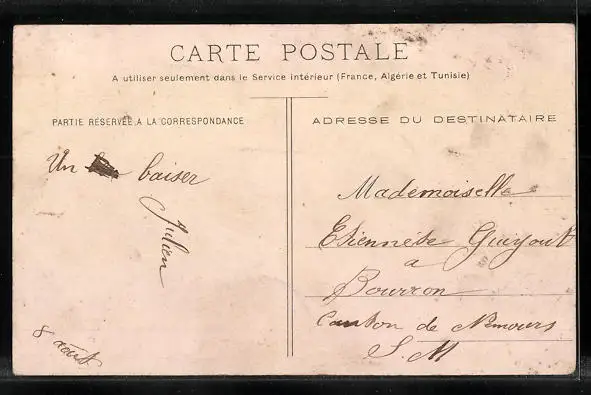 CARTE POSTALE
A utiliser seulement dans le Service intérieur (France, Algérie et Tunisie)
PARTIE RÉSERVÉE A LA CORRESPONDANCE
ADRESSE DU DESTINATAIRE
Un baiser
Julien
8 août
Mademoiselle
Etiennéte Guyout
a
Bourron
Canton de Nemours
S. M